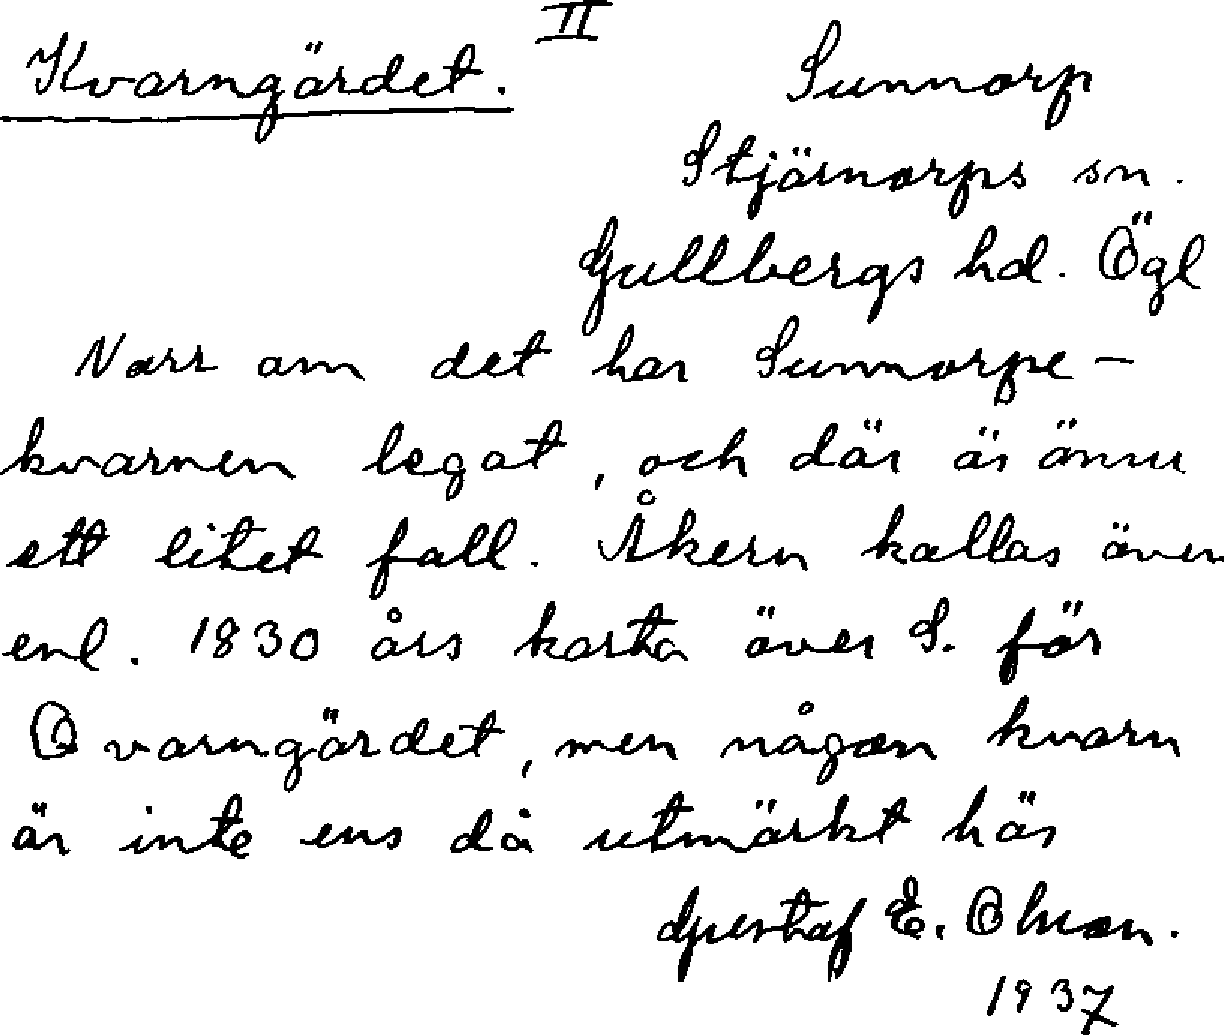 II
Kvarngärdet. Sunnorp
Stjärnorps sn.
Gullbergs hd. Ögl
Norr om det har Sunnorpe-
kvarnen legat, och där är ännu
ett litet fall. Åkern kallas även
enl. 1830 års karta över S. för
Qvarngärdet, men någon kvarn
är inte ens då utmärkt här
Gustaf E. Ohlson.
1937